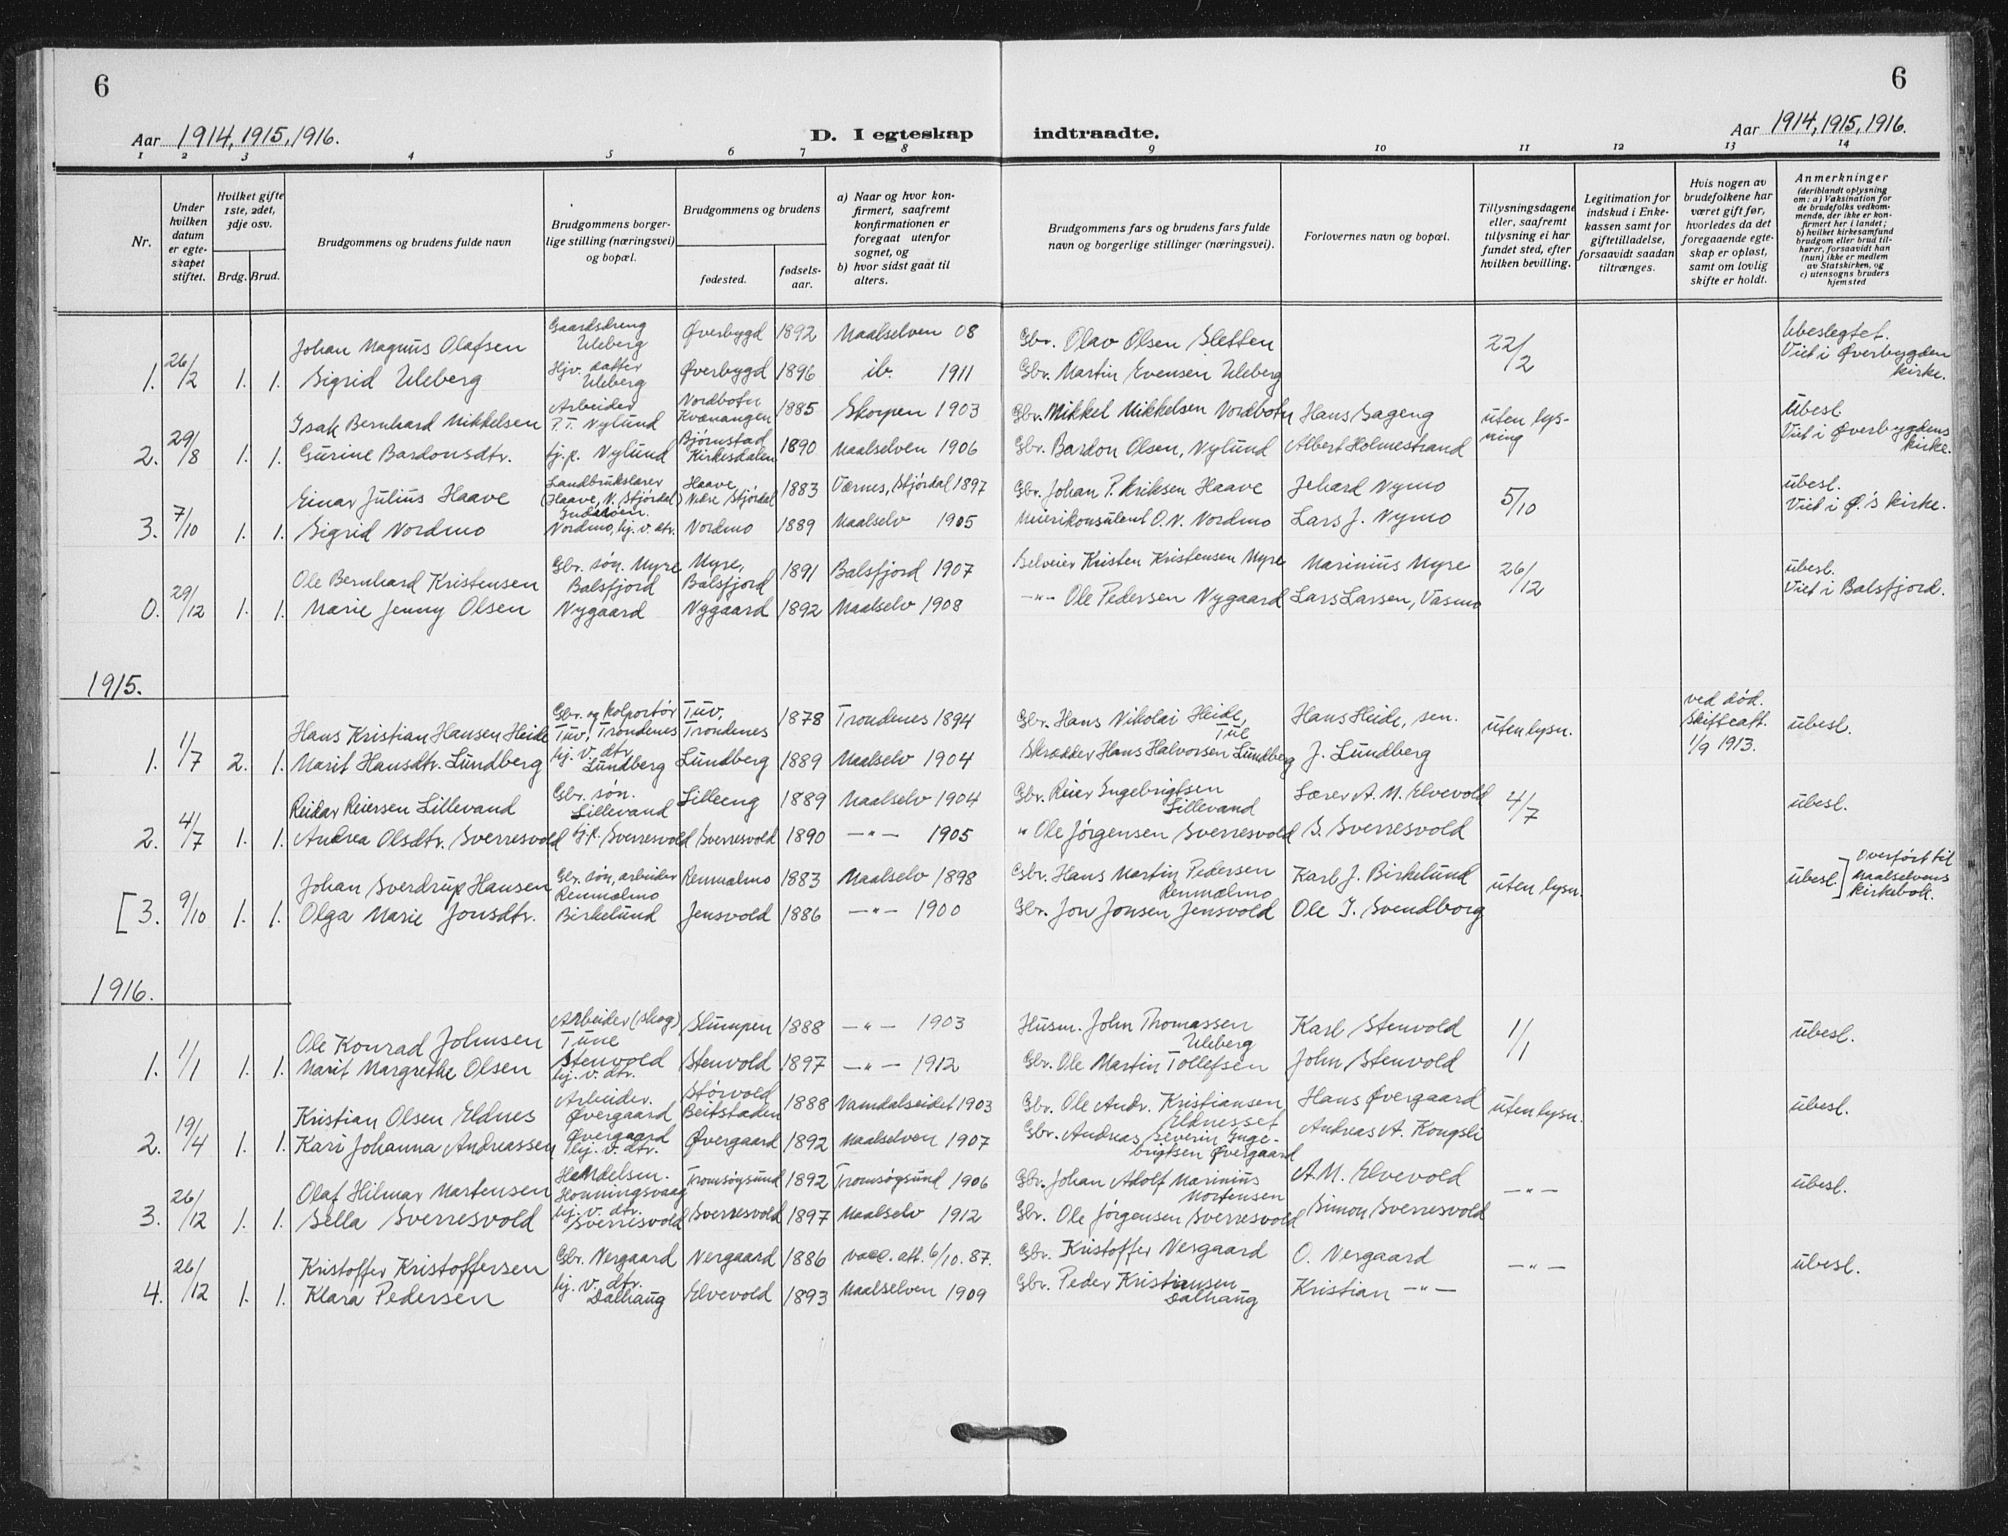 6
6
Aar 1914, 1915, 1916.
D. I egteskap indtraadte.
Aar 1914, 1915, 1916.
1 2 3 4 5 6 7 8 9 10 11 12 13 14
Nr.
Under hvilken datum er egteskapet stiftet.
Hvilket gifte 1ste, 2det, 3dje osv.
Brdg. Brud.
Brudgommens og brudens fulde navn
Brudgommens borgerlige stilling (næringsvei) og bopæl.
Brudgommens og brudens
fødested.
fødselsaar.
a) Naar og hvor konfirmert, saafremt konfirmationen er foregaat utenfor sognet, og
b) hvor sidst gaat til alters.
Brudgommens fars og brudens fars fulde navn og borgerlige stillinger (næringsvei).
Forlovernes navn og bopæl.
Tillysningsdagene eller, saafremt tillysning ei har fundet sted, efter hvilken bevilling.
Legitimation for indskud i Enkekassen samt for giftetilladelse, forsaavidt saadan tiltrænges.
Hvis nogen av brudefolkene har været gift før, hvorledes da det foregaaende egteskap er opløst, samt om lovlig skifte er holdt.
Anmerkninger
(deriblandt oplysning om: a) Vaksination for de brudefolks vedkommende, der ikke er konfirmert her i landet; b) hvilket kirkesamfund brudgom eller brud tilhører, forsaavidt han (hun) ikke er medlem av Statskirken, og c) utensogns bruders hjemsted
1. 26/2 1. 1. Johan Magnus Olafsen Gaardsdreng Uleberg Øverbygd 1892 Maalselven 08 Gbr. Olav Olsen Sletten 22/2 Ubeslegtet. Viet i Øverbygden kirke.
Sigrid Uleberg Hjv. datter Uleberg Øverbygd 1896 ib. 1911 Gbr. Martin Evensen Uleberg
2. 29/8 1. 1. Isak Bernhard Mikkelsen Arbeider P.T. Nylund Nordbotn Kvænangen 1885 Skorpen 1903 Gbr. Mikkel Mikkelsen Nordbotn Hans Sageng uten lysning Ubesl. Viet i Øverbygdens kirke.
Gurine Bardonsdtr. tj.p. Nylund Bjørnstad Kirkesdalen 1890 Maalselven 1906 Gbr. Bardon Olsen, Nylund Albert Holmestrand
3. 7/10 1. 1. Einar Julius Haave Landbrukslærer (Haave, N. Stjørdal) Haave, Nedre Stjørdal 1883 Værnes, Stjørdal 1897 Gbr. Johan P. Eriksen Haave Jehard Nymo 5/10 ubesl. Viet i Ø.'s kirke.
Sigrid Nordmo Nordmo, hj. v. dtr. Nordmo 1889 Maalselv 1905 Meierikonsulent O.N. Nordmo Lars J. Nymo
0. 29/12 1. 1. Ole Bernhard Kristensen Gbr. søn. Myre Balsfjord Myre, Balsfjord 1891 Balsfjord 1907 Selveier Kristen Kristensen Myre Marinius Myre 26/12 ubesl. Viet i Balsfjord.
Marie Jenny Olsen Nygaard Nygaard 1892 Maalselv 1908 —"— Ole Pedersen Nygaard Lars Larsen, Vasmo
1915.
1. 1/7 2. 1. Hans Kristian Hansen Heide Gbr. og kolportør Tuv, Trondenes Tuv, Trondenes 1878 Trondenes 1894 Gbr. Hans Nikolai Heide, Hans Heide, sen. uten lysn. ved død. Skifteatt. 1/9 1913. ubesl.
Marit Hansdtr. Lundberg hj. v. dtr. Lundberg Lundberg 1889 Maalselv 1904 Skrædder Hans Halvorsen Lundberg J. Lundberg
2. 4/7 1. 1. Reidar Reiersen Lillevand Gbr. søn. Lillevand Lilleeng 1889 Maalselv 1904 Gbr. Reier Engebrigtsen Lillevand Lærer A.M. Elvevold 4/7 ubesl.
Andrea Olsdtr. Sverresvold tj.p. Sverresvold Sverresvold 1890 —"— 1905 " Ole Jørgensen Sverresvold S. Sverresvold
[3. 9/10 1. 1. Johan Sverdrup Hansen Gbr. søn, arbeider Renmælmo Renmælmo 1883 Maalselv 1898 Gbr. Hans Martin Pedersen Renmælmo Karl J. Birkelund uten lysn. ubesl.] Overført til Maalselvens kirkebok.
Olga Marie Jonsdtr. Birkelund Jensvold 1886 —"— 1900 Gbr. Jon Jonsen Jensvold Ole J. Svendborg
1916.
1. 1/1 1. 1. Ole Konrad Johnsen Arbeider (skog) Tune Slumpen 1888 —"— 1903 Husm. John Thomassen Uleberg Karl Stenvold 1/1 ubesl.
Marit Margrethe Olsen Stenvold hj. v. dtr. Stenvold 1897 —"— 1912 Gbr. Ole Martin Tollefsen John Stenvold
2. 19/4 1. 1. Kristian Olsen Eldnes Arbeider. Øvergaard Størvold Beitstaden 1888 Namdalseidet 1903 Gbr. Ole Andr. Kristiansen Eldnesset Hans Øvergaard uten lysn. ubesl.
Kari Johanna Andreassen Øvergaard hj. v. dtr. Øvergaard 1892 Maalselven 1907 Gbr. Andreas Severin Engebrigtsen Øvergaard Andreas A. Kongsli
3. 26/12 1. 1. Olaf Hilmar Mortensen Handelsm. Honningsvaag Tromsøysund 1892 Tromsøysund 1906 Gbr. Johan Adolf Marinius Mortensen A.M. Elvevold —"— ubesl.
Sella Sverresvold hj. v. dtr. Sverresvold Sverresvold 1897 Maalselv 1912 Gbr. Ole Jørgensen Sverresvold Simon Sverresvold
4. 26/12 1. 1. Kristoffer Kristoffersen Gbr. Nergaard Nergaard 1886 vacc. att. 6/10.87. Gbr. Kristoffer Nergaard O. Nergaard —"— ubesl.
Klara Pedersen hj. v. dtr. Dalhaug Elvevold 1893 Maalselven 1909 Gbr. Peder Kristiansen Dalhaug Kristian —"—